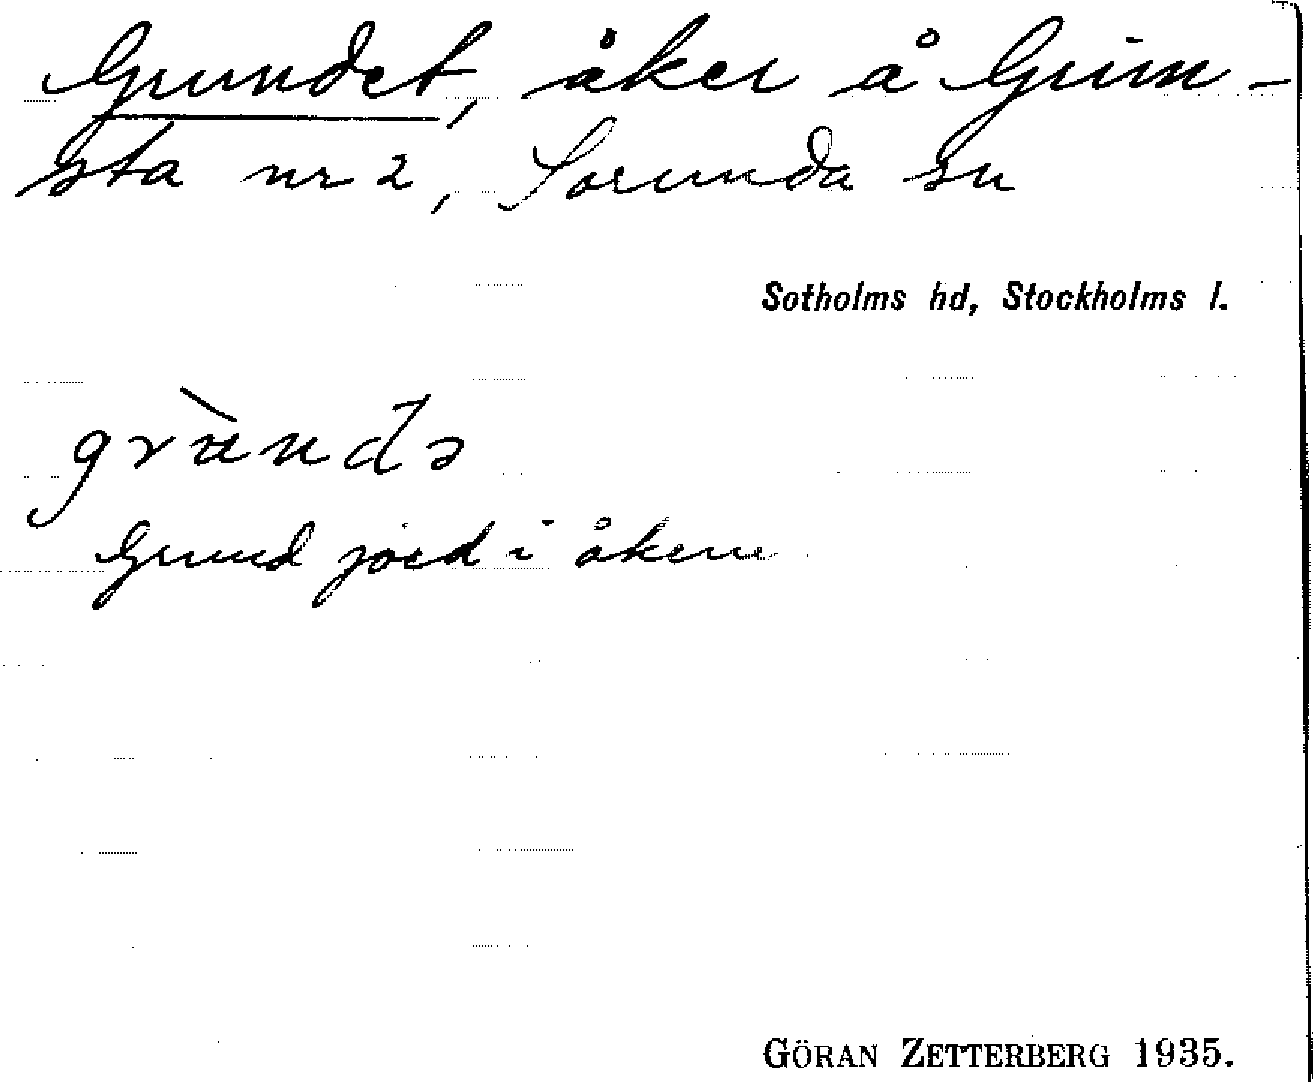 Grundet, åker å Grim-
sta nr 2, Sorunda sn
Sotholms hd, Stockholms l.
gràndə
Grund jord i åkern
GÖRAN ZETTERBERG 1935.